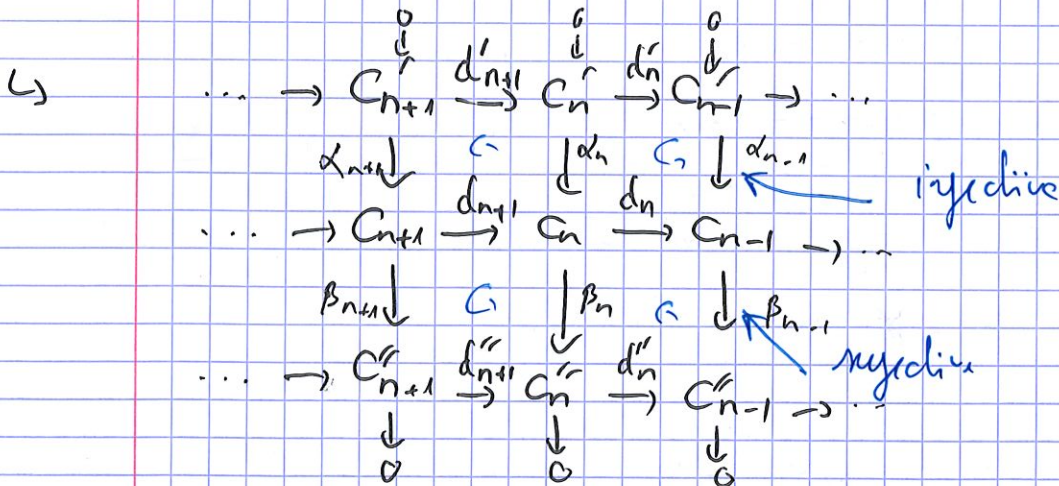 0 0 0
↳ ⋯ → C'ₙ₊₁ →(d'ₙ₊₁) C'ₙ →(d'ₙ) C'ₙ₋₁ → ⋯
αₙ₊₁ ↓ ↺ ↓ αₙ ↺ ↓ αₙ₋₁ injective
⋯ → Cₙ₊₁ →(dₙ₊₁) Cₙ →(dₙ) Cₙ₋₁ → ⋯
βₙ₊₁ ↓ ↺ ↓ βₙ ↺ ↓ βₙ₋₁
surjective
⋯ → C''ₙ₊₁ →(d''ₙ₊₁) C''ₙ →(d''ₙ) C''ₙ₋₁ → ⋯
0 0 0